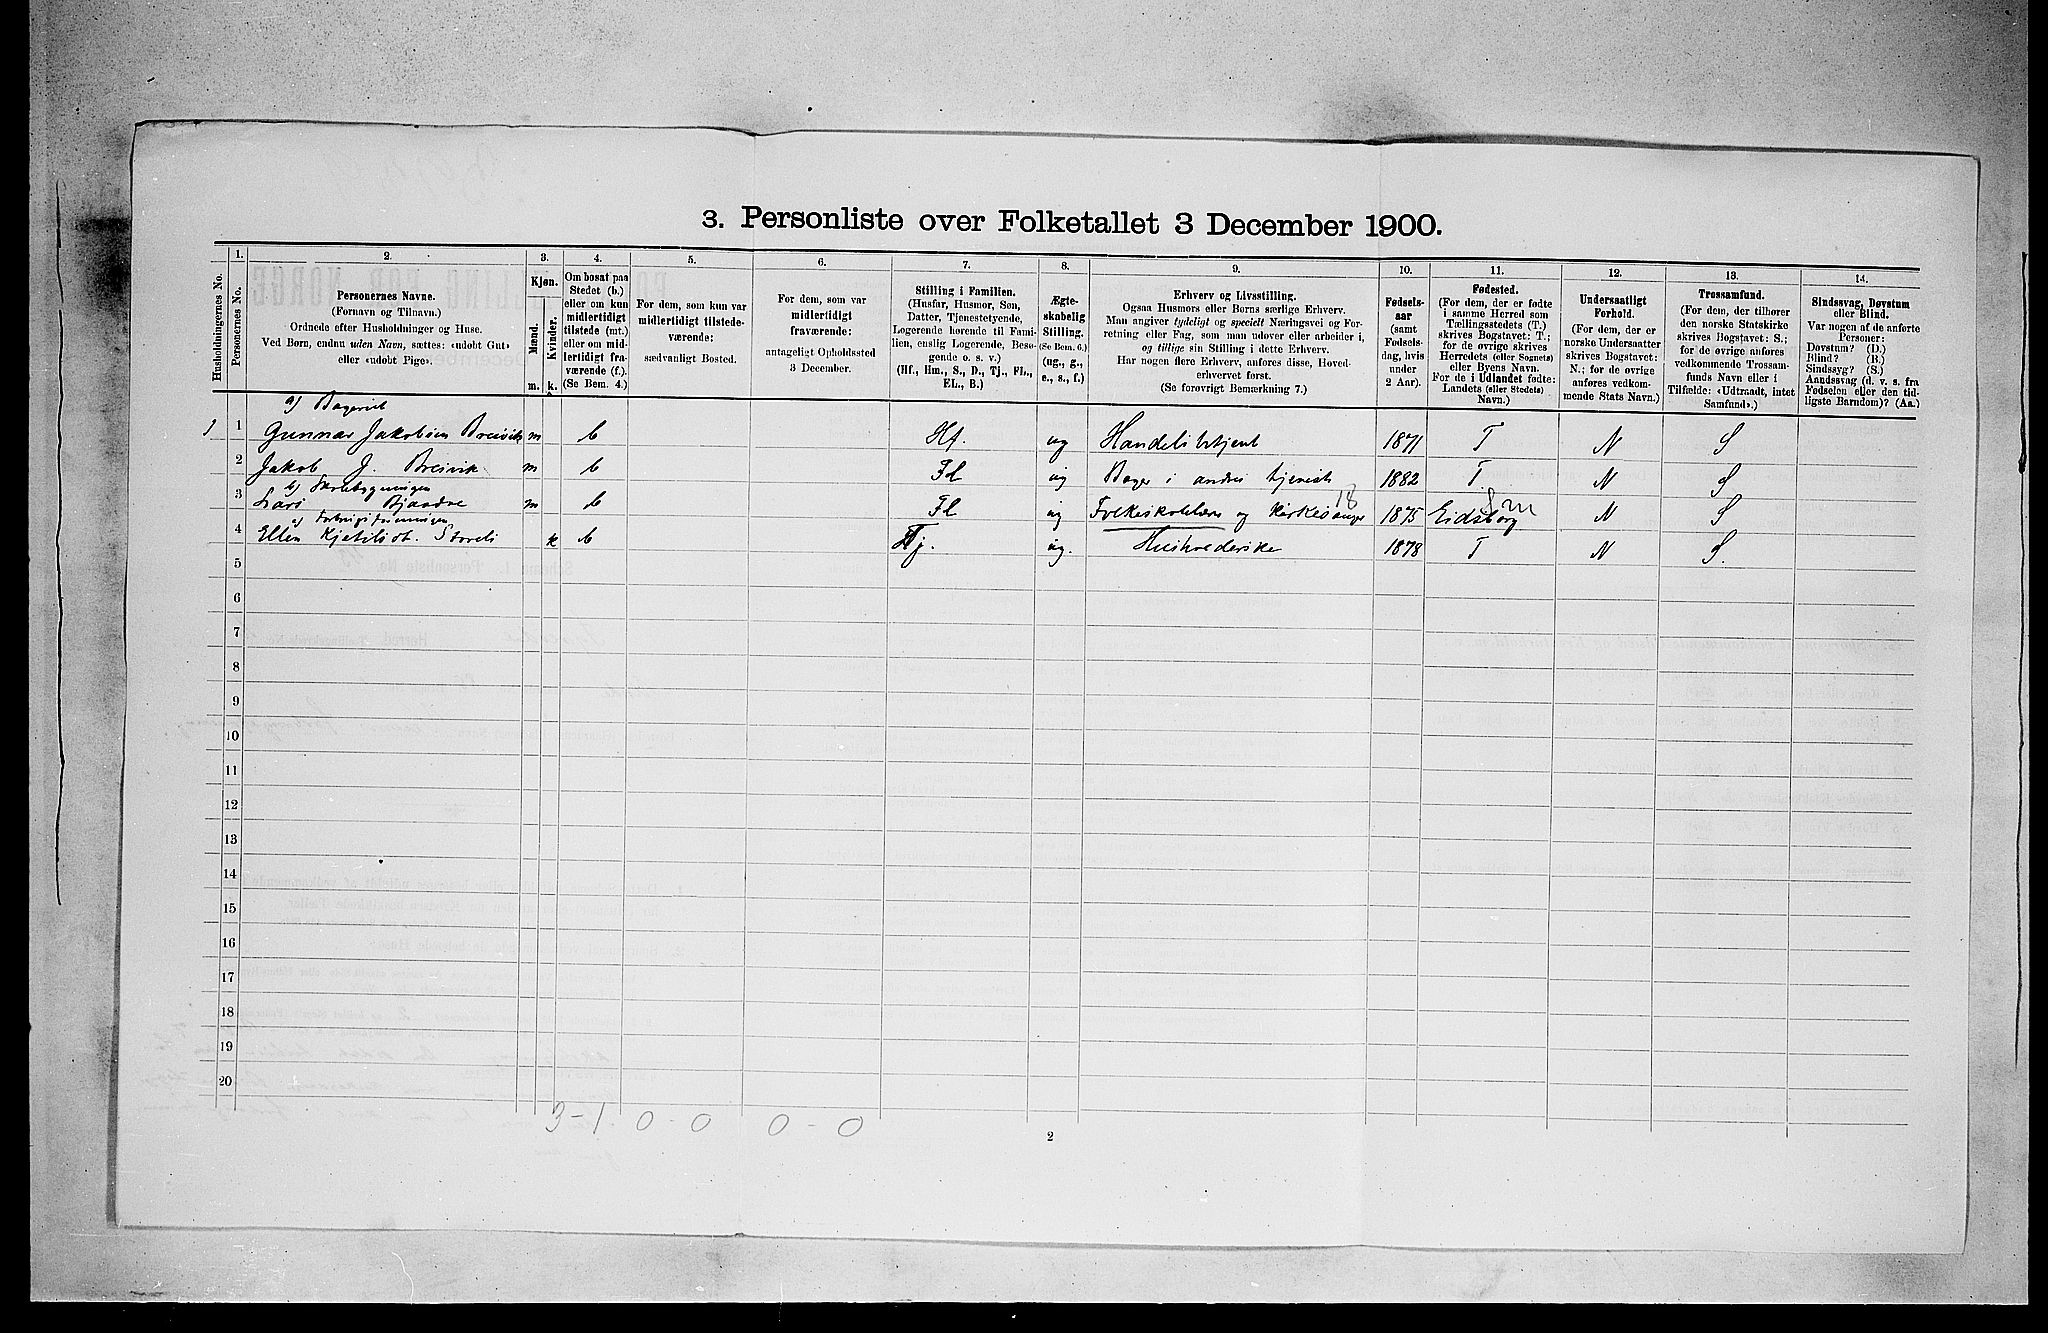 3. Personliste over Folketallet 3 December 1900.
Husholdningernes No.
1.
Personernes No.
2.
Personernes Navne.
(Fornavn og Tilnavn.)
Ordnede efter Husholdninger og Huse.
Ved Børn, endnu uden Navn, sættes: «udøbt Gut»
eller «udøbt Pige».
3.
Kjøn.
Mænd.
Kvinder.
m.
k.
4.
Om bosat paa
Stedet (b.)
eller om kun
midlertidigt
tilstede (mt.)
eller om mid-
lertidigt fra-
værende (f.).
(Se Bem. 4.)
5.
For dem, som kun var
midlertidigt tilstede-
værende:
sædvanligt Bosted.
6.
For dem, som var
midlertidigt
fraværende:
antageligt Opholdssted
3 December.
7.
Stilling i Familien.
(Husfar, Husmor, Søn,
Datter, Tjenestetyende,
Logerende hørende til Fami-
lien, enslig Logerende, Besø-
gende o. s. v.)
(Hf., Hm., S., D., Tj., FL.,
EL., B.)
8.
Ægte-
skabelig
Stilling.
(Se Bem. 6.)
(ug., g.,
e., s., f.)
9.
Erhverv og Livsstilling.
Ogsaa Husmors eller Børns særlige Erhverv.
Man angiver tydeligt og specielt Næringsvei og For-
retning eller Fag, som man udøver eller arbeider i,
og tillige sin Stilling i dette Erhverv.
Har nogen flere Erhverv, anføres disse, Hoved-
erhvervet først.
(Se forøvrigt Bemærkning 7.)
10.
Fødsels-
aar
(samt
Fødsels-
dag, hvis
under
2 Aar).
11.
Fødested.
(For dem, der er fødte
i samme Herred som
Tællingsstedets (T.)
skrives Bogstavet: T.;
for de øvrige skrives
Herredets (eller Sognets)
eller Byens Navn.
For de i Udlandet fødte:
Landets (eller Stedets)
Navn.)
12.
Undersaatligt
Forhold.
(For dem, der er
norske Undersaatter
skrives Bogstavet:
N.; for de øvrige
anføres vedkom-
mende Stats Navn.)
13.
Trossamfund.
(For dem, der tilhører
den norske Statskirke
skrives Bogstavet: S.;
for de øvrige anføres
vedkommende Trossam-
funds Navn eller i
Tilfælde: «Udtraadt, intet
Samfund».)
14.
Sindssvag, Døvstum
eller Blind.
Var nogen af de anførte
Personer:
Døvstum? (D.)
Blind? (B.)
Sindssyg? (S.)
Aandssvag (d. v. s. fra
Fødselen eller den tid-
ligste Barndom)? (Aa.)
a) Bageriet
1 1 Gunnar Jakobsen Breivik m b Hf. ug Handelsbetjent 1871 T N S
2 Jakob J. Breivik m b Fl ug Bager i andres tjeneste 1882 T. N S
b) Skolebygningen
3 Lars Bjaadve m b Fl ug Folkeskolelærer og Kirkesanger 18 1875 Eidsborg N S
c) Forbrugsforeningen
4 Ellen Kjetilsdt. Storeli k b Tj. ug. Husholderske 1878 T N S.
5
6
7
8
9
10
11
12
13
14
15
16
17
18
19
20
3-1 0-0 0-0
2